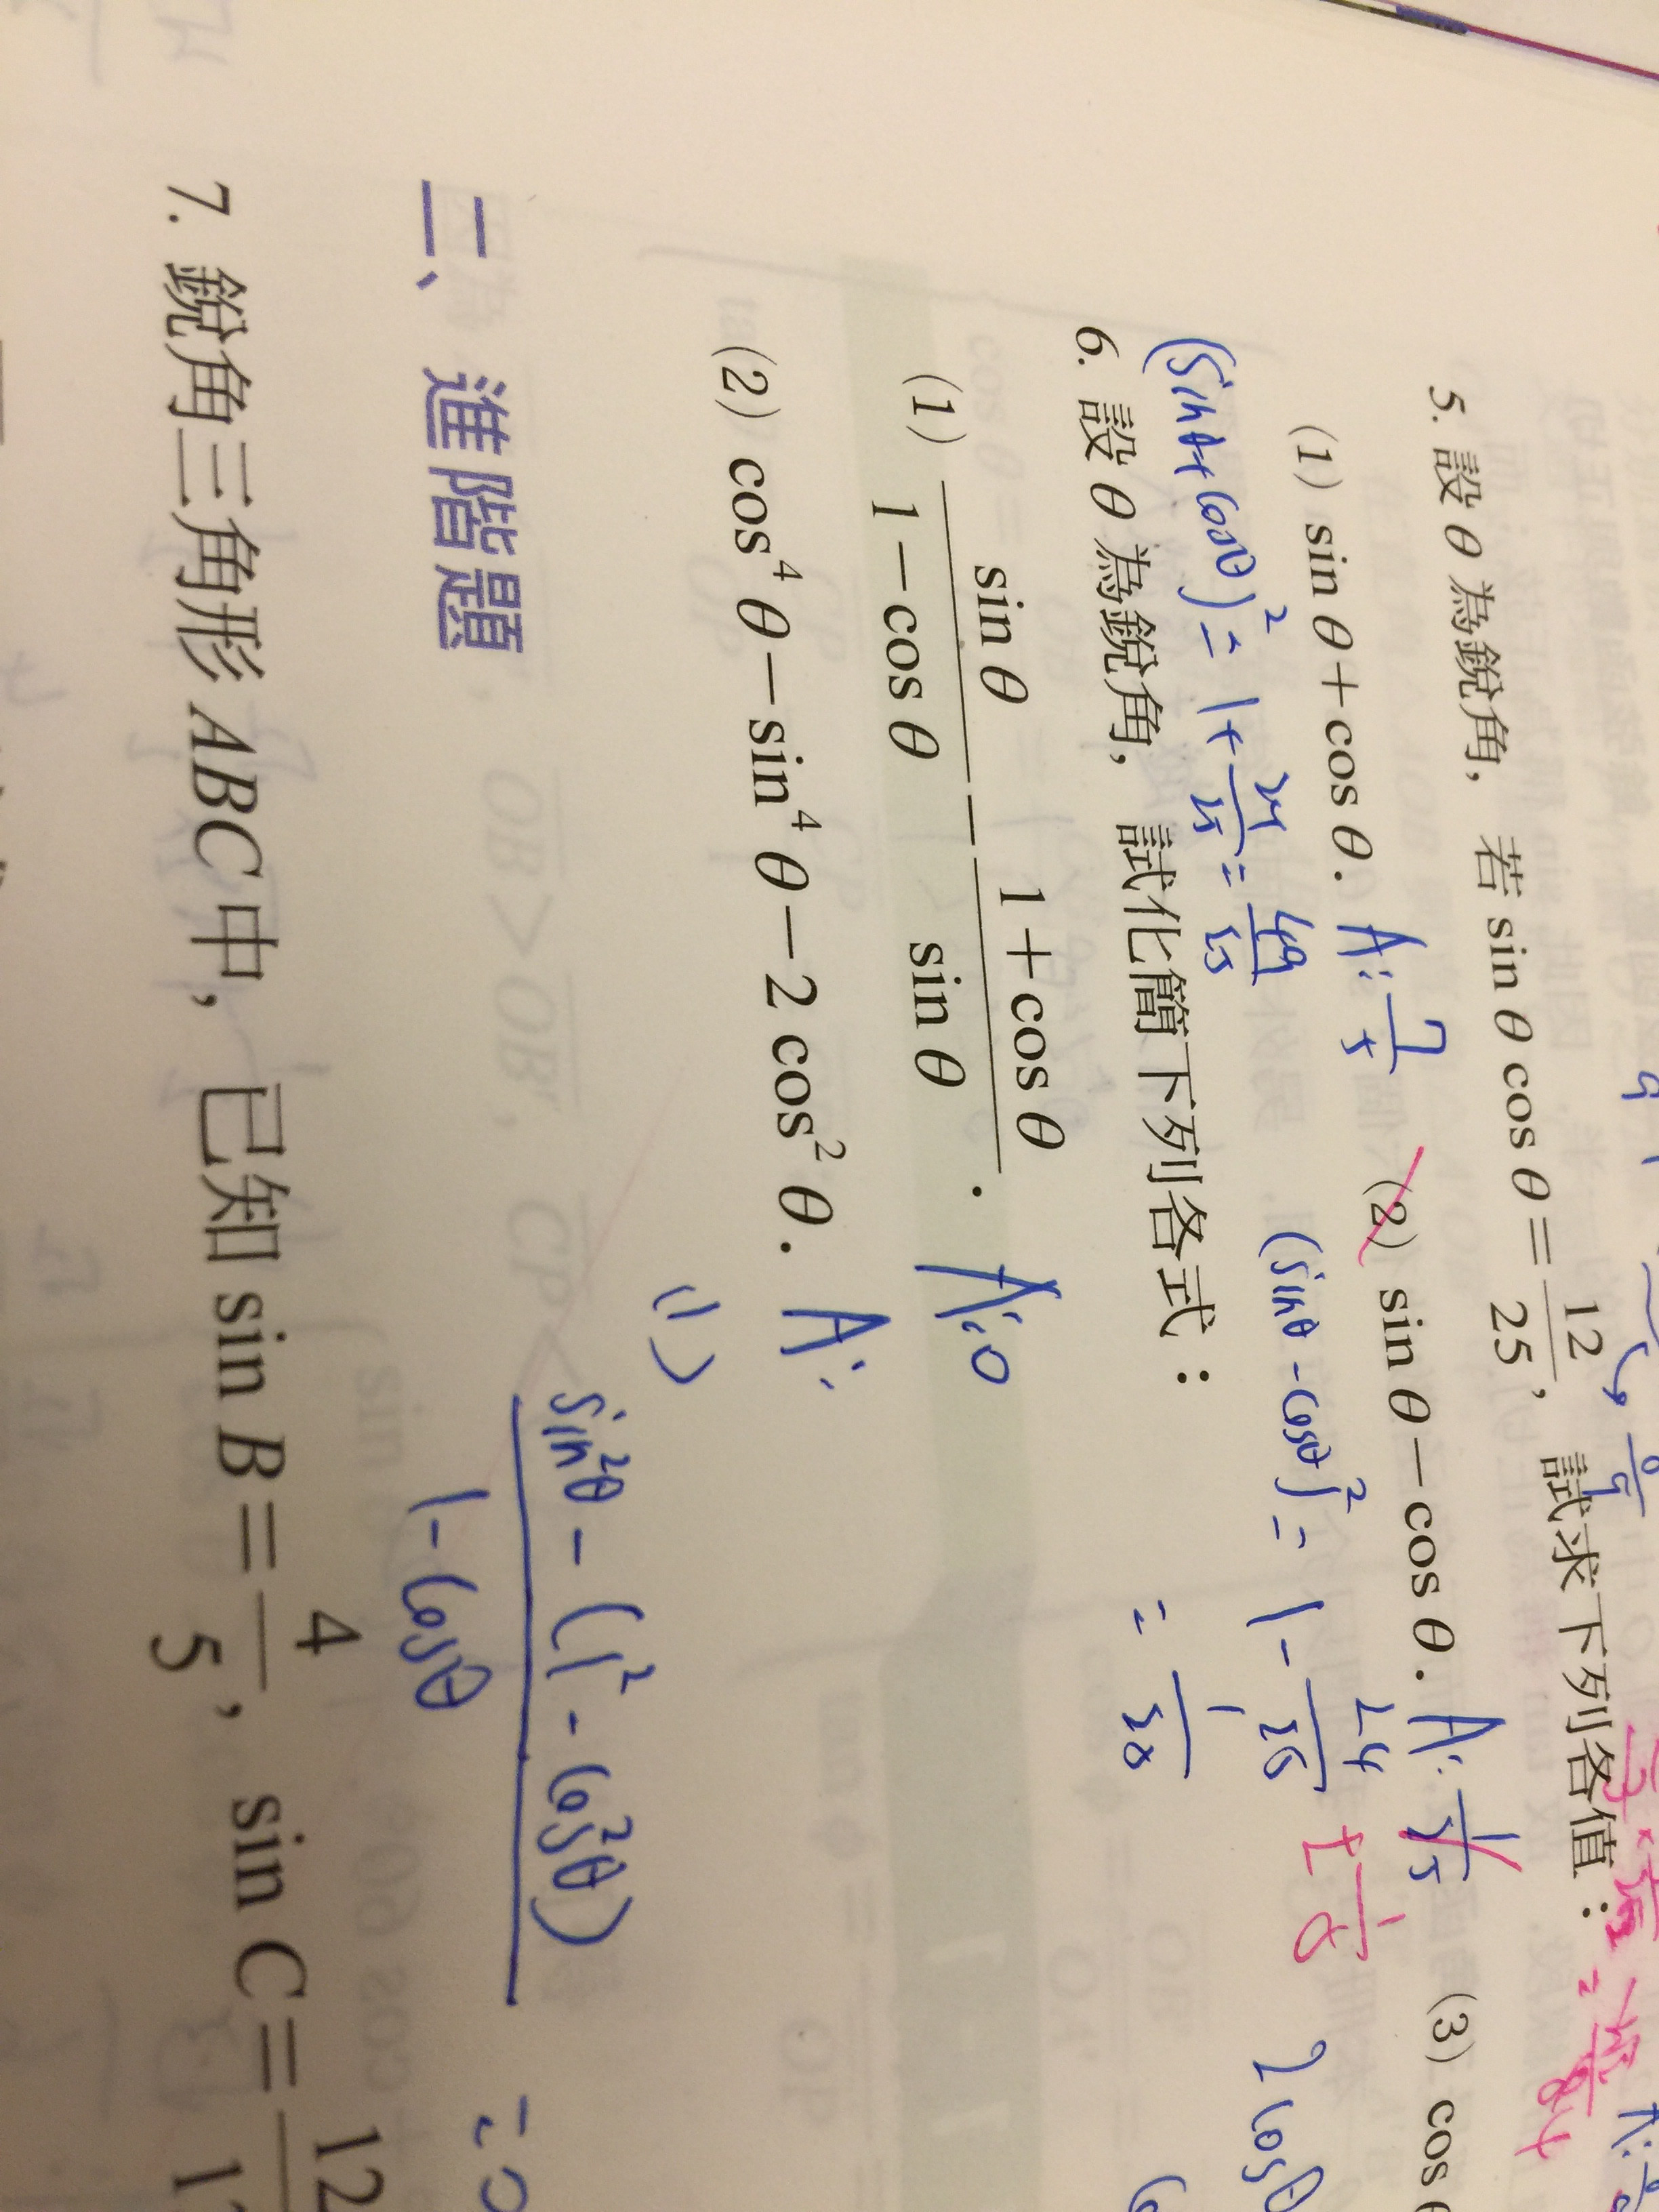 5. 設 θ 為銳角, 若 sin θ cos θ = 12/25, 試求下列各值：
(1) sin θ + cos θ. A: 7/5 (2) sin θ − cos θ. A: 1/5 ± 1/5 (3) cos θ
(sinθ + cosθ)² = 1 + 24/25 = 49/25
(sinθ - cosθ)² = 1 - 24/25
= 1/25
2 cosθ
6. 設 θ 為銳角, 試化簡下列各式：
(1) sin θ/(1 − cos θ) − (1 + cos θ)/sin θ. A: 0
(2) cos⁴ θ − sin⁴ θ − 2 cos² θ. A:
(1)
(sin²θ - (1² - cos²θ))/(1 - cosθ) = 0
二、進階題
7. 銳角三角形 ABC 中, 已知 sin B = 4/5, sin C = 12